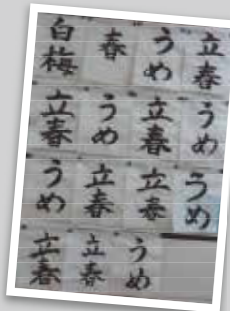 白梅 春 うめ 立春
立春 うめ 立春 うめ
うめ 立春 立春 うめ
立春 立春 うめ